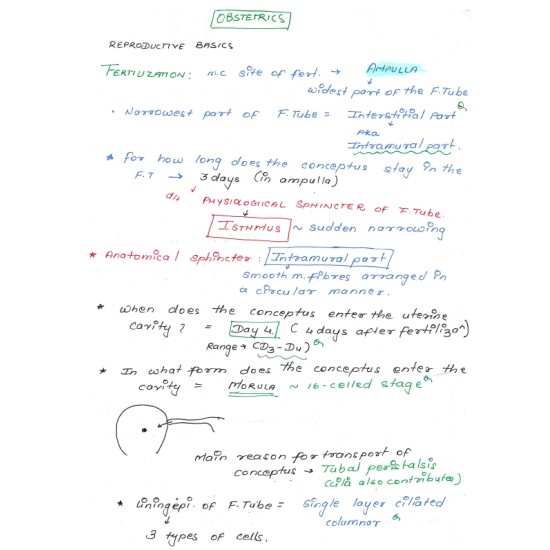 OBSTETRICS
REPRODUCTIVE BASICS
FERTILIZATION: m.c site of fert. → AMPULLA
↓
widest part of the F.Tube
• Narrowest part of F.Tube = Interstitial Part
↓
AKA
Intramural part.
* For how long does the conceptus stay in the
F.T → 3 days (in ampulla)
d/t ↓ PHYSIOLOGICAL SPHINCTER OF F.Tube.
↓
ISTHMUS ~ sudden narrowing
* Anatomical Sphincter: Intramural part
smooth m. fibres arranged in
a circular manner.
* When does the conceptus enter the uterine
cavity? = Day 4. (4 days after fertiliza^n)
Range → (D3-D4)
* In what form does the conceptus enter the
cavity = MORULA ~ 16-celled stage
Main reason for transport of
conceptus → Tubal peristalsis
(cilia also contributes)
* Lining epi. of F.Tube = single layer ciliated
↓ columnar
3 types of cells.